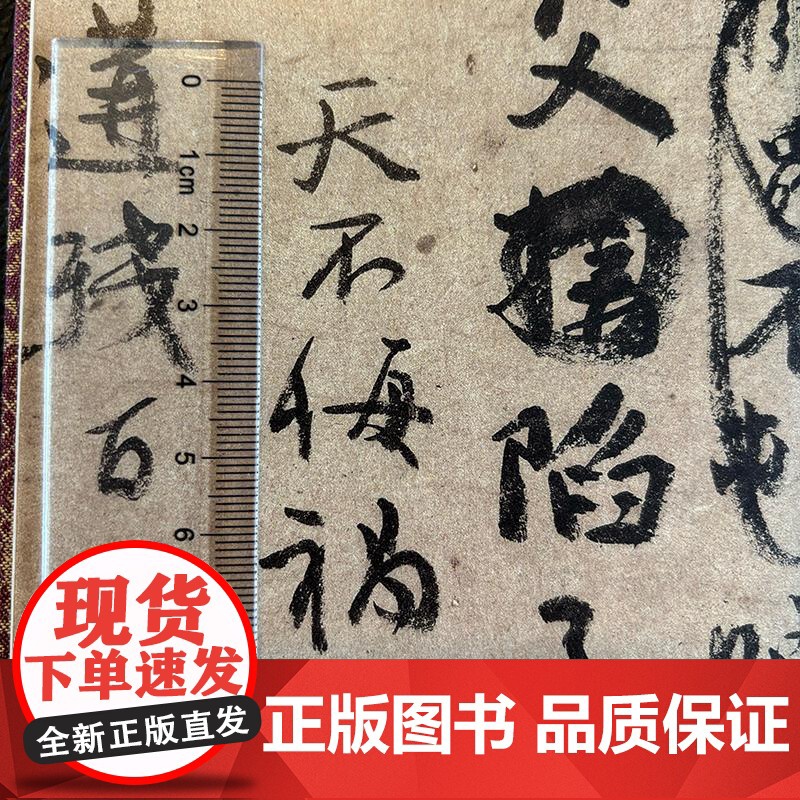 父
陷
天不悔禍
遘殘百
0
1cm
2
3
4
5
6
现货
下单速发
全新正版直发
正版图书 品质保证